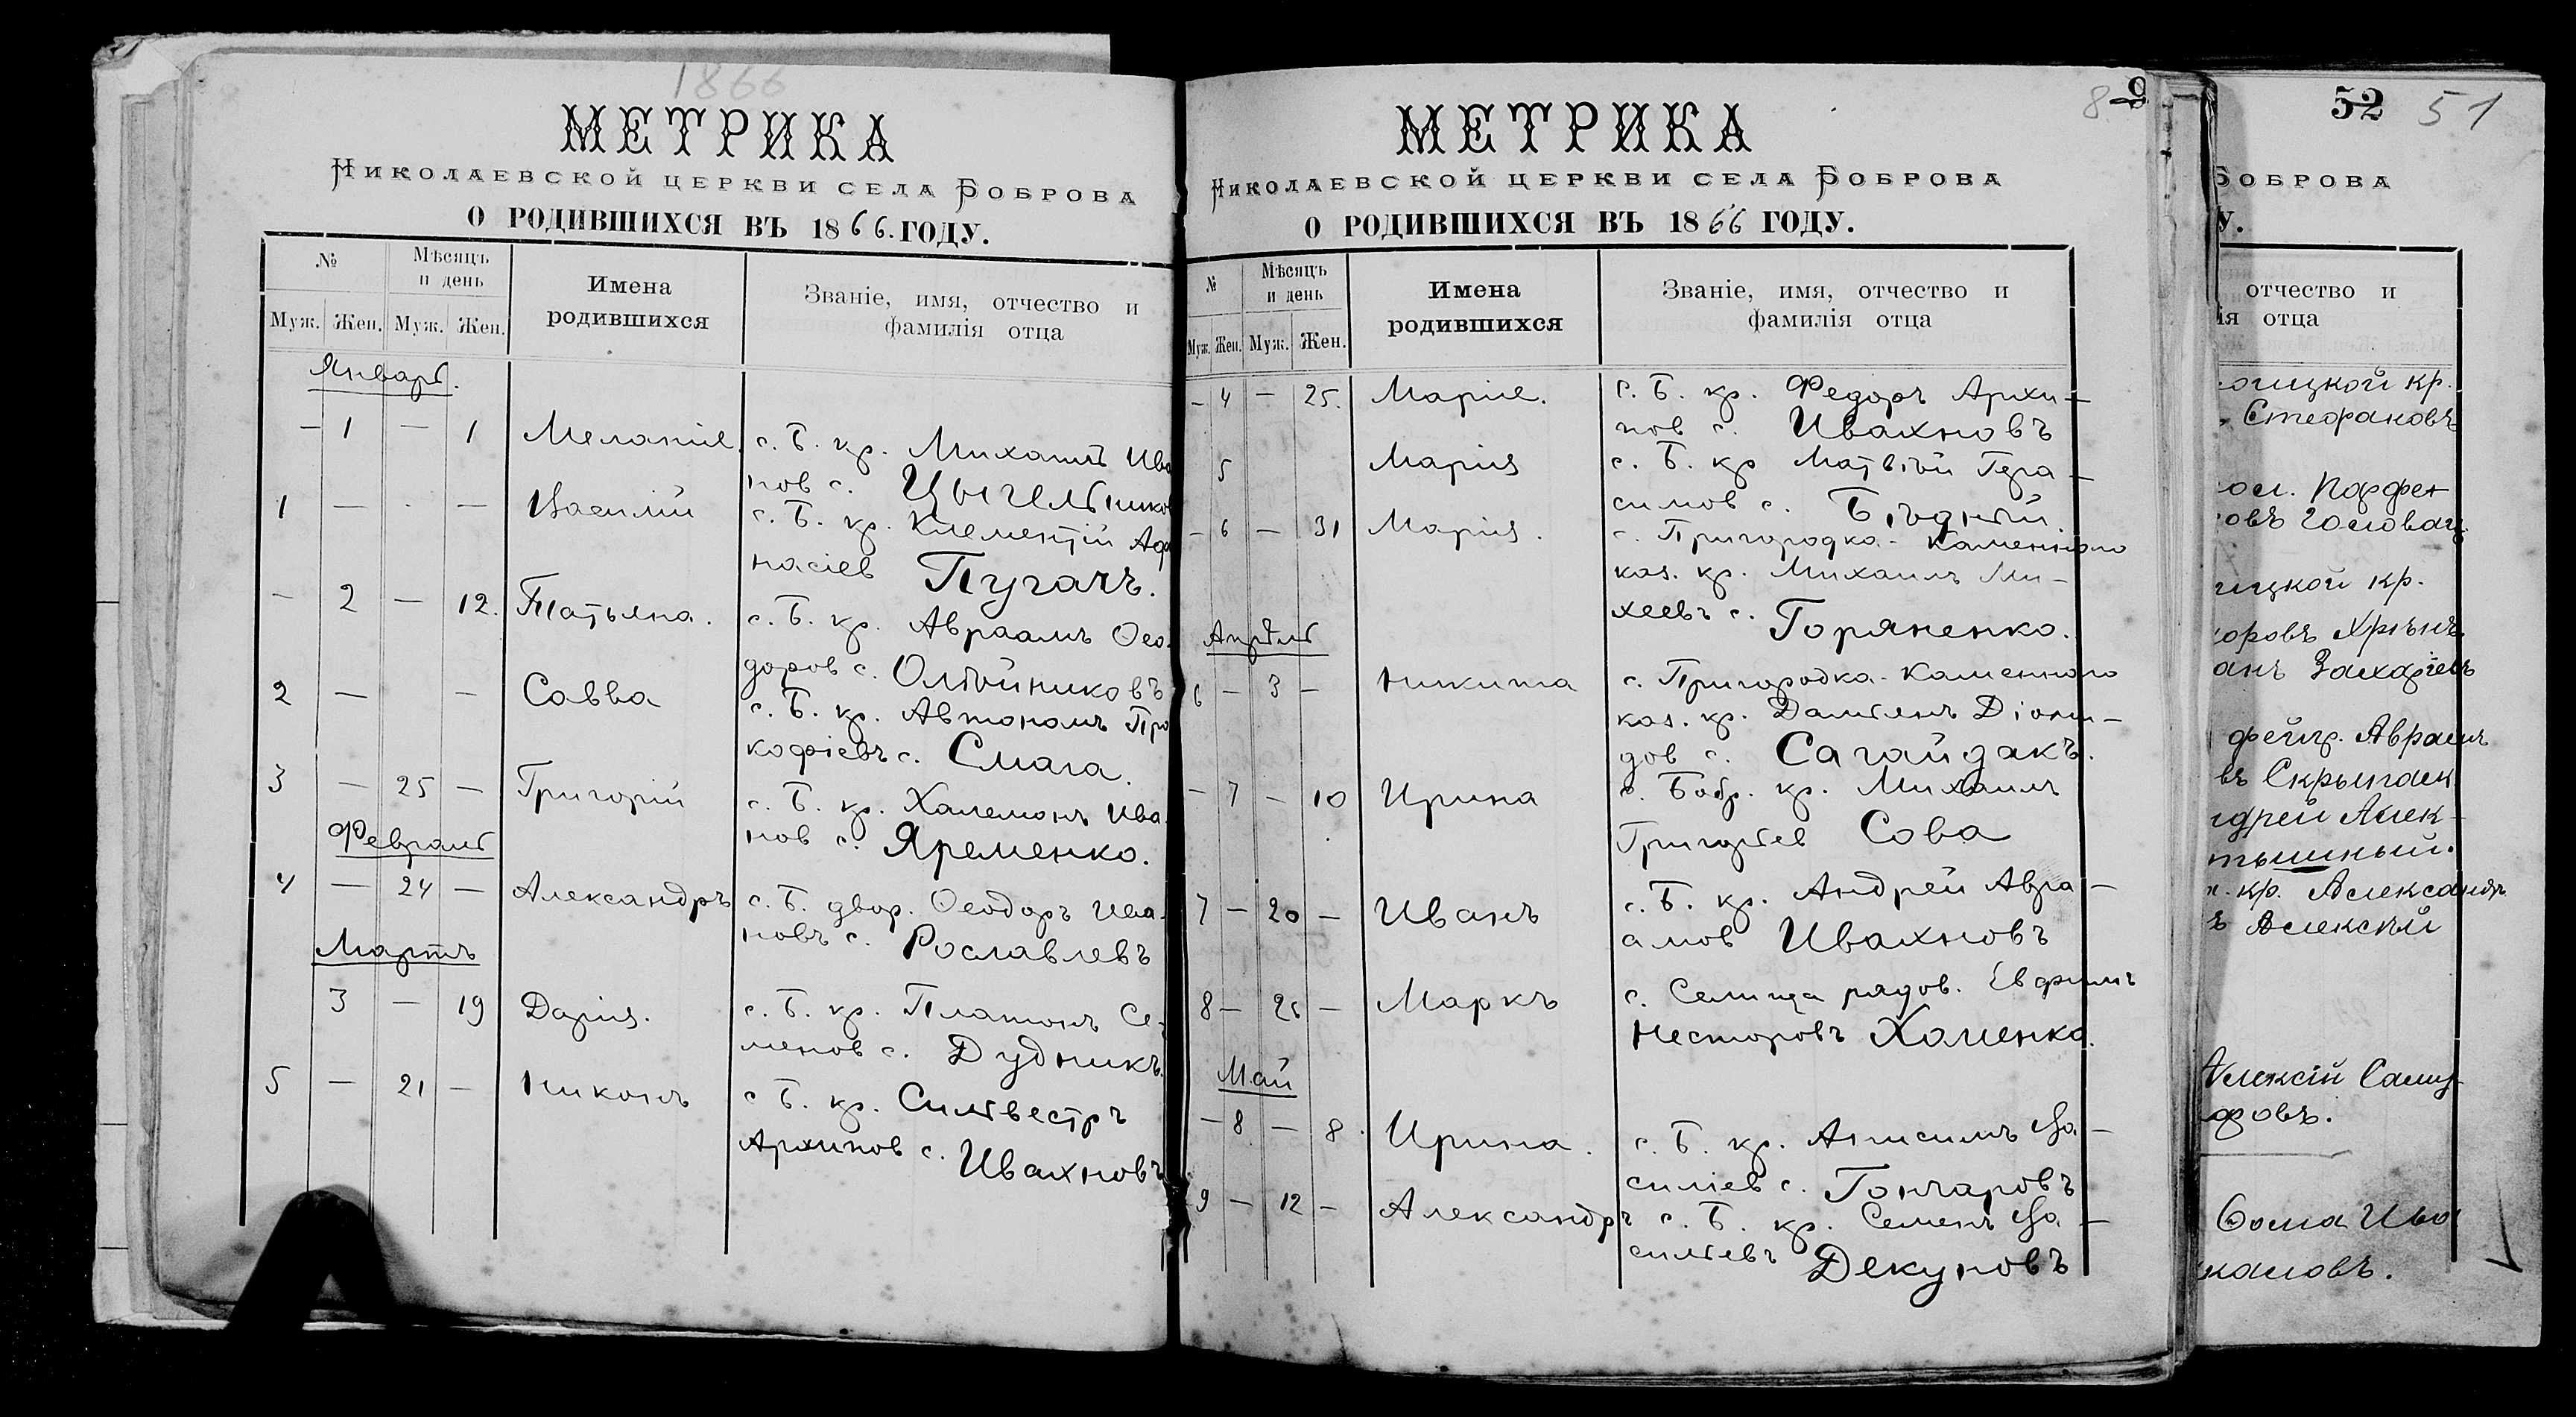 1866
МЕТРИКА
НИКОЛАЕВСКОЙ ЦЕРКВИ СЕЛА БОБРОВА
О РОДИВШИХСЯ ВЪ 1866. ГОДУ.
№ Мѣсяцъ и день Имена родившихся Званіе, имя, отчество и фамилія отца
Муж. Жен. Муж. Жен.
Январь.
— 1 — 1 Меланіе с. Б. кр. Михаилъ Ива
нов с. Цыгельников
1 — - — Василій с. Б. кр. Клементій Афа
насіев Пугачъ.
— 2 — 12. Татьяна. с. Б. кр. Авраамъ Ѳео-
доров с. Олѣйниковъ
2 — — Савва с. Б. кр. Автономъ Про
кофіевъ с. Смага.
3 — 25 — Григорій с. Б. кр. Халемонъ Ива-
нов с. Яременко.
Февраль
4 — 24 — Александръ с. Б. двор. Ѳеодоръ Ива-
новъ с. Рославлевъ
Мартъ
3 — 19 Дарія. с. Б. кр. Платонъ Се-
менов с. Дудникъ.
5 — 21 — Никонъ с Б. кр. Сильвестръ
Архипов с. Ивахновъ
8 9
МЕТРИКА
НИКОЛАЕВСКОЙ ЦЕРКВИ СЕЛА БОБРОВА
О РОДИВШИХСЯ ВЪ 1866 ГОДУ.
№ Мѣсяцъ и день Имена родившихся Званіе, имя, отчество и фамилія отца
Муж. Жен. Муж. Жен.
— 4 — 25. Маріе. с. Б. кр. Федоръ Архи-
пов с. Ивахновъ
5 Марія с. Б. кр Матвѣй Гера-
симов с. Бѣдный.
— 6 — 31 Марія. с. Пригородка-Каменного
каз. кр. Михаилъ Ми-
хеевъ с. Горяненко.
Апрѣль
6 — 3 — Никита с. Пригородка-Каменного
каз. кр. Дамьянъ Діони-
дов с. Сагайдакъ.
— 7 — 10 Ирина с. Бобр. кр. Михаилъ
Григорьев Сова
7 — 20 — Иванъ с. Б. кр. Андрей Авра-
амов Ивахновъ
8 — 25 — Маркъ с. Селища рядов. Евфимъ
Несторовъ Хоменко.
Май
— 8 — 8. Ирина. с. Б. кр. Анисимъ Ва-
силіев с. Гончаровъ
9 — 12 — Александръ с. Б. кр. Семенъ Ва-
сильевъ Декуновъ
52 51
БОБРОВА
У.
отчество и
ія отца
ицкой кр.
Стефановъ
Парфен
овъ Головач
ицкой кр.
оровъ Хрѣнъ
анъ Захаріевъ
фейер. Аврамъ
въ Скрыпаск
ндрей Алек-
тышный.
кр. Александръ
ъ Алексѣй
Алексій Саму
фовъ.
Ѳома Ива
каловъ.